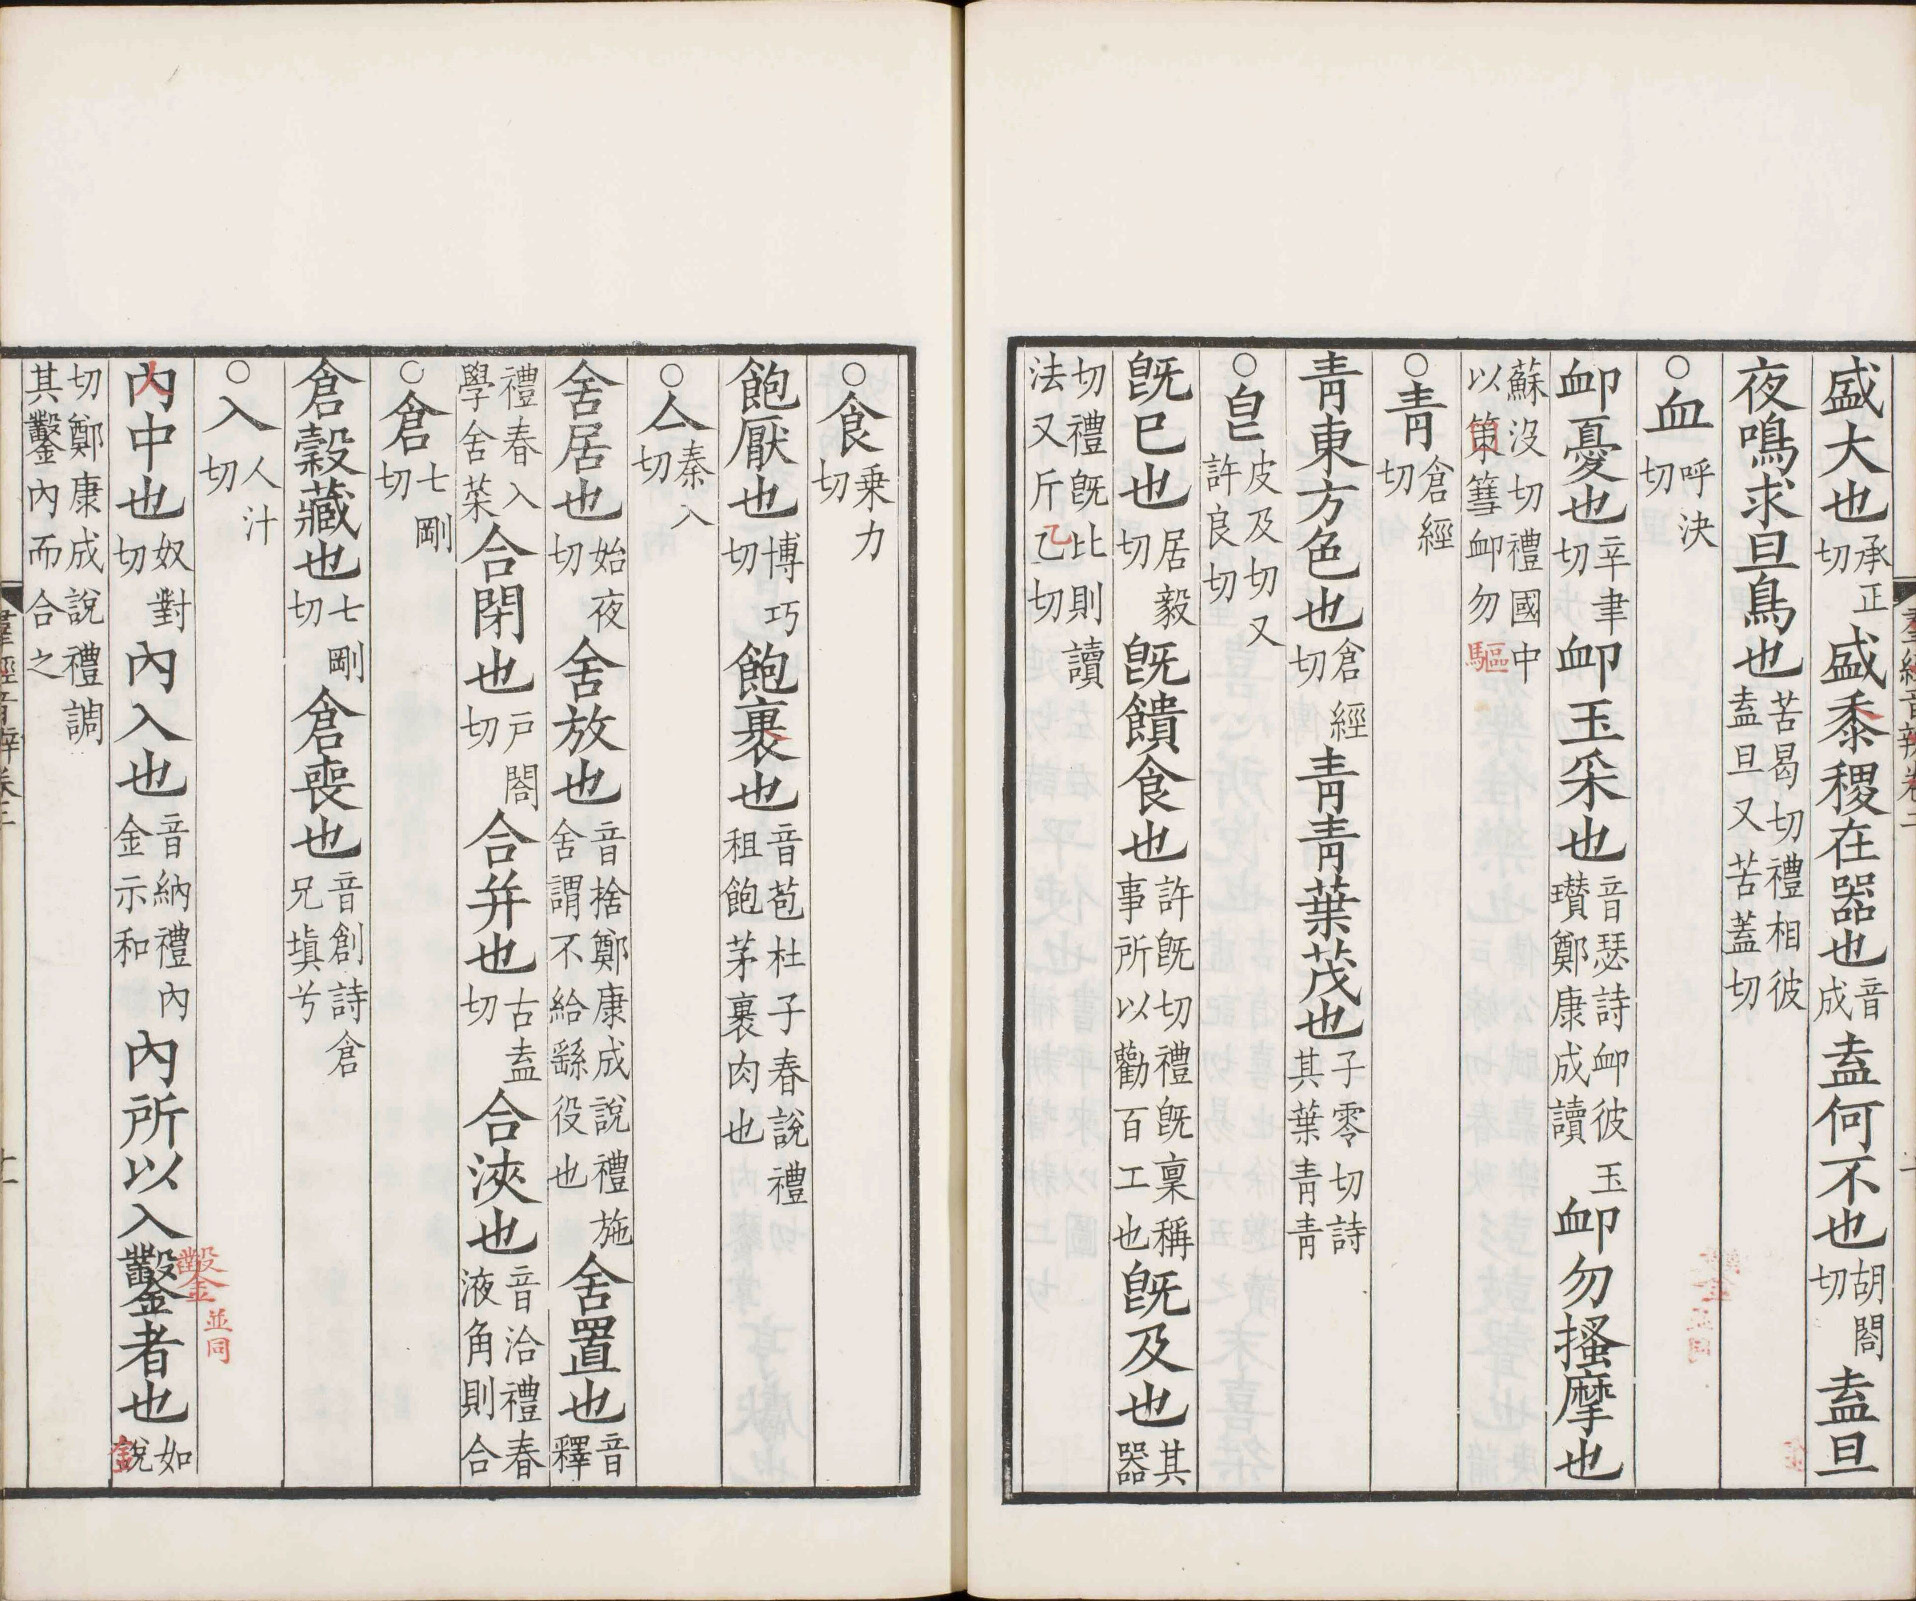 盛大也承正切盛黍稷在器也音成盍何不也胡閤切盍旦
夜鳴求旦鳥也苦曷切禮相彼盍旦又苦蓋切
○血呼決切
卹憂也辛聿切卹玉采也音瑟詩卹彼玉瓚鄭康成讀卹勿搔摩也
蘇沒切禮國中以策篲卹勿驅
○青倉經切
青東方色也倉經切青青葉茂也子零切詩其葉青青
○皀皮及切又許良切
旣巳也居毅切旣饋食也許旣切禮旣稟稱事所以勸百工也旣及也其器
切禮旣比則讀法又斤乙切
○食乗力切
飽厭也博巧切飽裹也音苞杜子春說禮租飽茅裹肉也
○亼秦入切
舍居也始夜切舍放也音捨鄭康成說禮施舍謂不給繇役也舍置也音釋
禮春入學舍菜合閉也戸閤切合幷也古盍切合浹也音洽禮春液角則合
○倉七剛切
倉穀藏也七剛切倉喪也音創詩倉兄塡兮
○入人汁切
內中也奴對切內入也音納禮內金示和內所以入鑿者也如說
鑿並同
切鄭康成說禮調其鑿內而合之